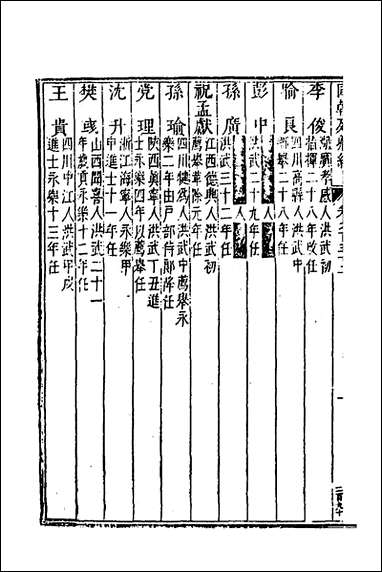 李俊
孝感人洪武初
二十八年改任
喻良
四川高縣人洪武中
二十八年任
彭中
人
洪武二十九年任
孫廣
人
洪武三十二年任
祝孟獻
江西德興人洪武初
薦舉革除元年任
孫瑜
四川犍為人洪武中薦舉永
樂二年由戶部侍郎降任
党理
陝西真寧人洪武丁丑進
士永樂四年以薦舉任
沈升
浙江海寧人永樂甲
申進士十一年任
樊彧
山西聞喜人洪武二十一
年歲貢永樂十二年任
王貴
四川中江人洪武甲戌
進士永樂十三年任